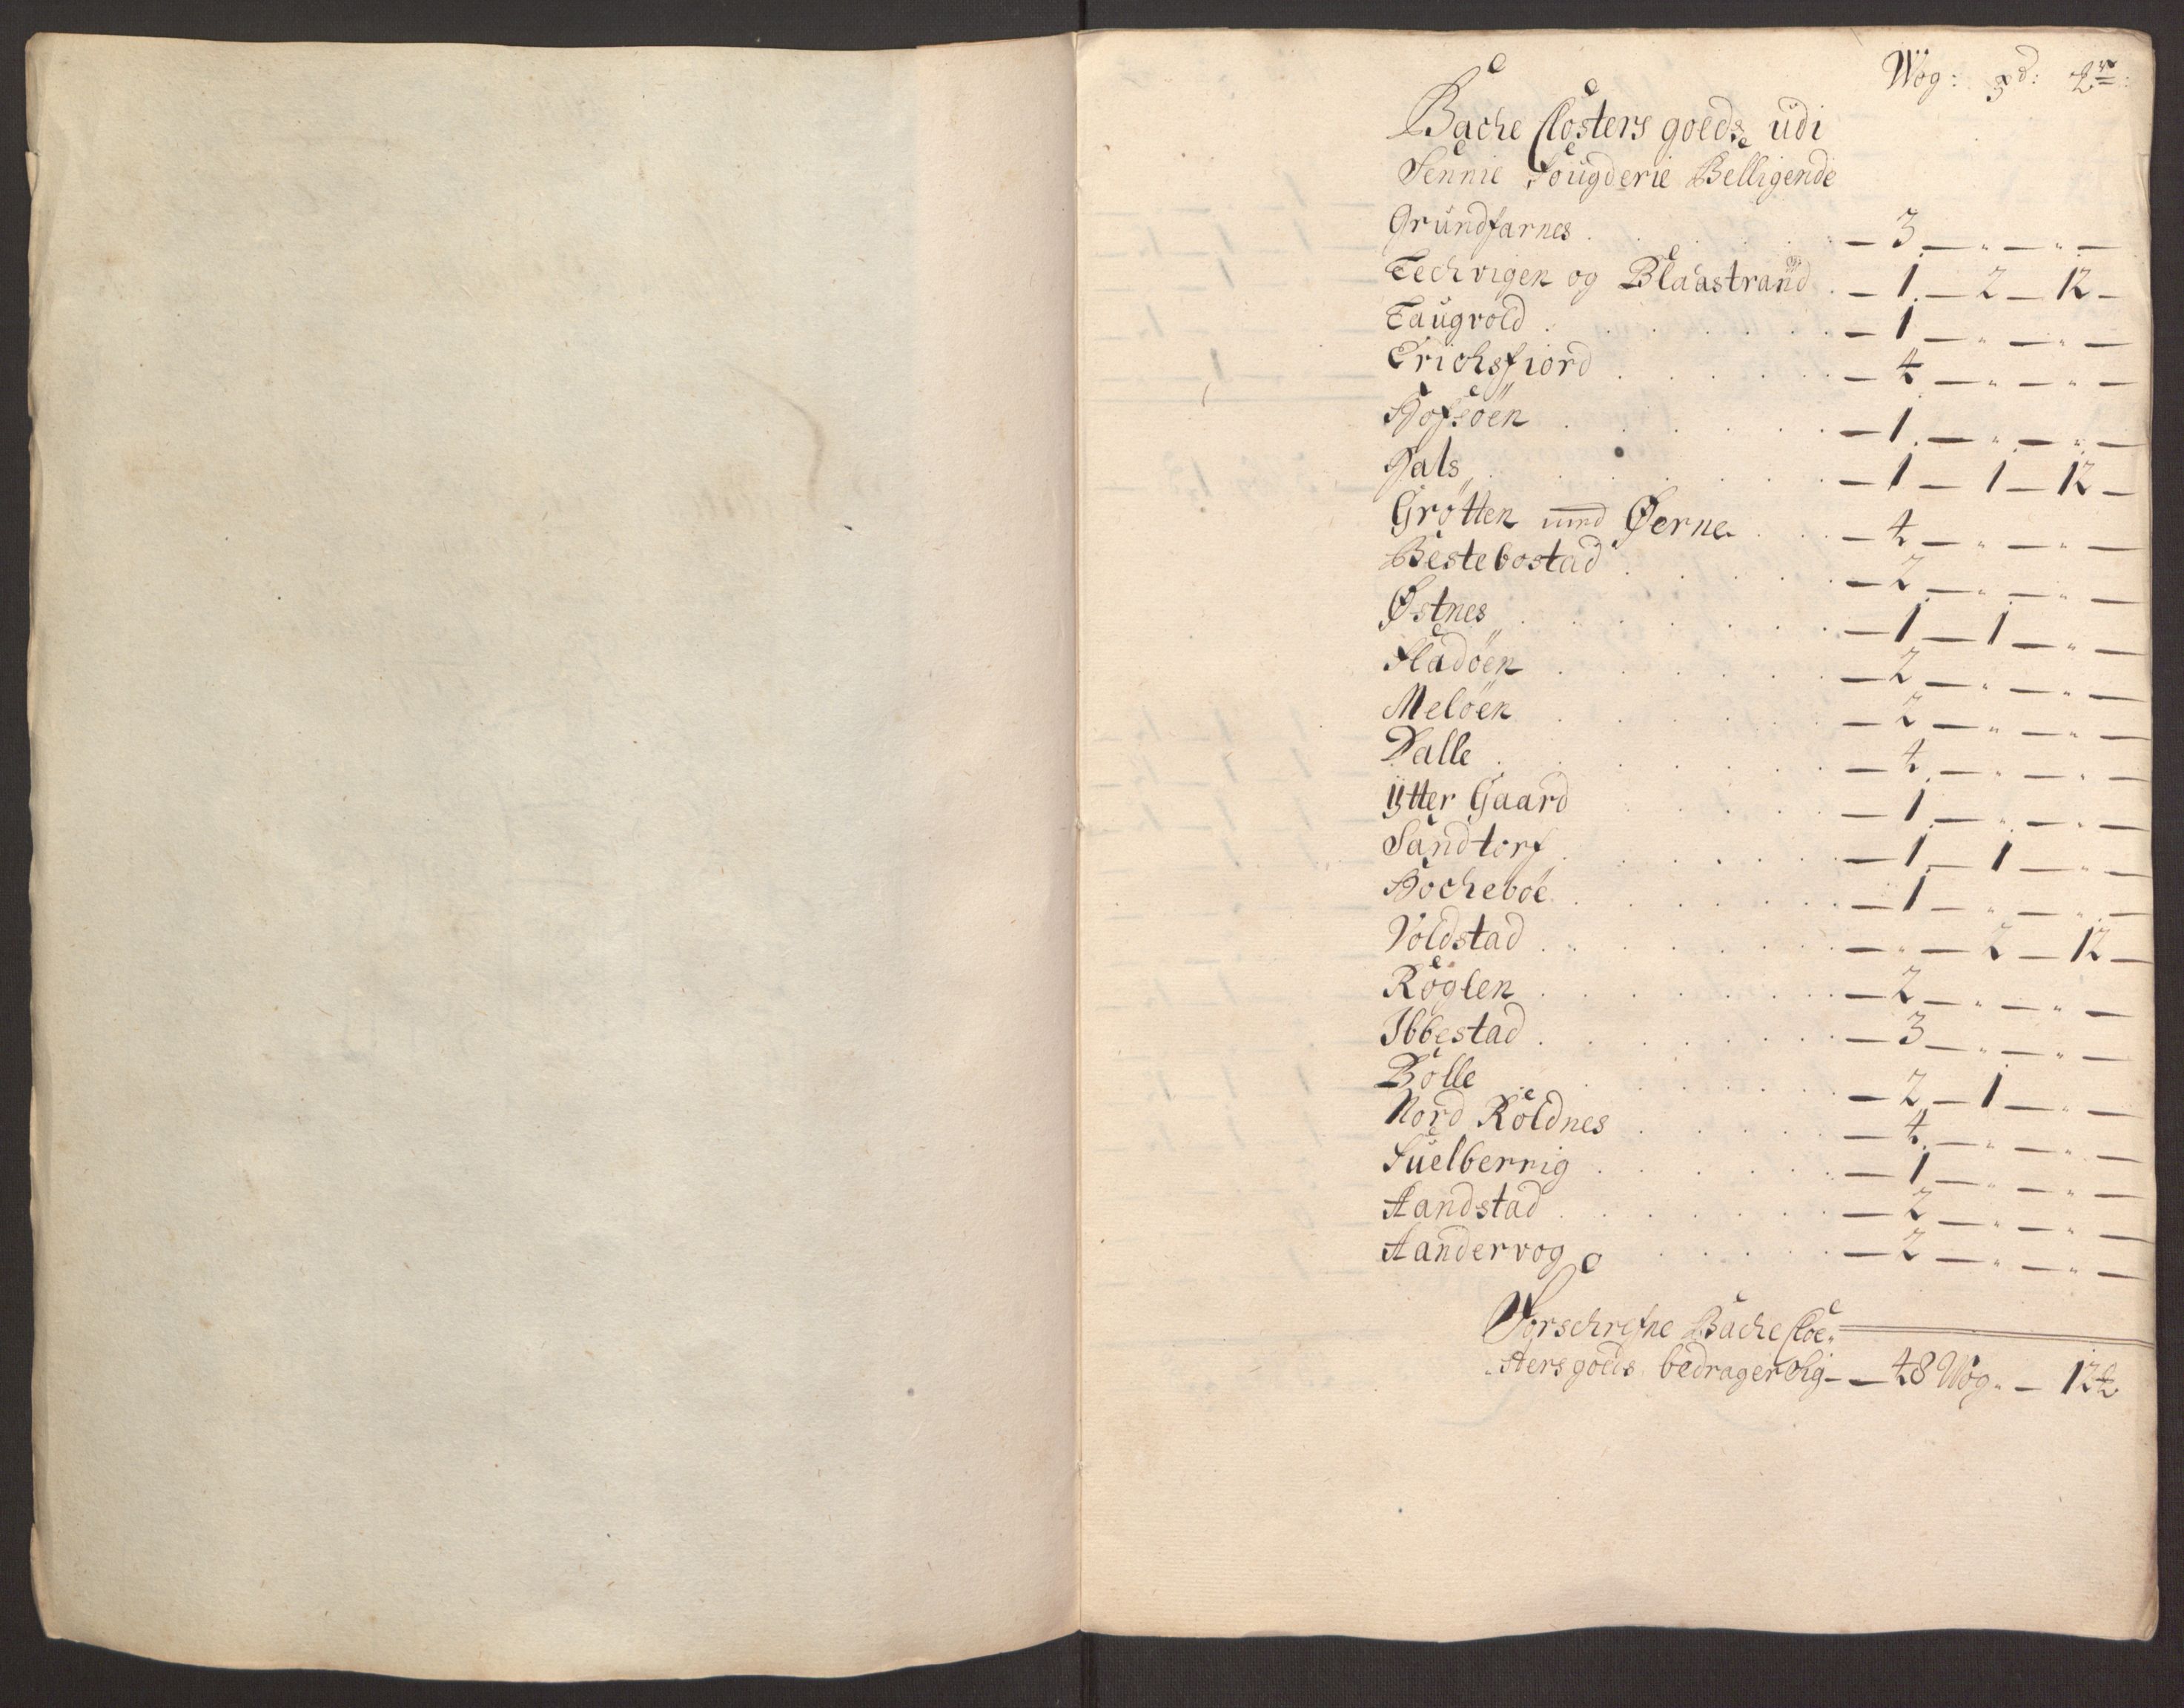 Wog: pd: mr:
Bache Closters goeds udi
Sennie Fougderie Belligende
Grundfarnes . . . — 3 — „ — „ —
Techvigen og Blaastrand . — 1 — 2 — 12 —
Taugvold . . . — 1 — „ — „ —
Erichsfiord . . . — 4 — „ — „ —
Hofsöen . . . — 1 — „ — „ —
Hals . . . — 1 — 1 — 12 —
Grötten med Øerne . . . — 4 — „ — „ —
Bestebostad . . . — 2 — „ — „ —
Østnes . . . — 1 — 1 — „ —
Fladöen . . . — 2 — „ — „ —
Melöen . . . — 2 — „ — „ —
Dalle . . . — 4 — „ — „ —
Ytter Gaard . . . — 1 — „ — „ —
Sandtorf . . . — 1 — 1 — „ —
Hocheböe . . . — 1 — „ — „ —
Voldstad . . . — „ — 2 — 12 —
Röglen . . . — 2 — „ — „ —
Ibbestad . . . — 3 — „ — „ —
Bolle . . . — 2 — 1 — „ —
Nord Roldnes . . . — 4 — „ — „ —
Fuelberrig . . . — 1 — „ — „ —
Aandstad . . . — 2 — „ — „ —
Aandervog . . . — 2 — „ — „ —
Forschrefne Bache Cloe-
stersgoeds bedragerblig — 48 Wog „ — 12